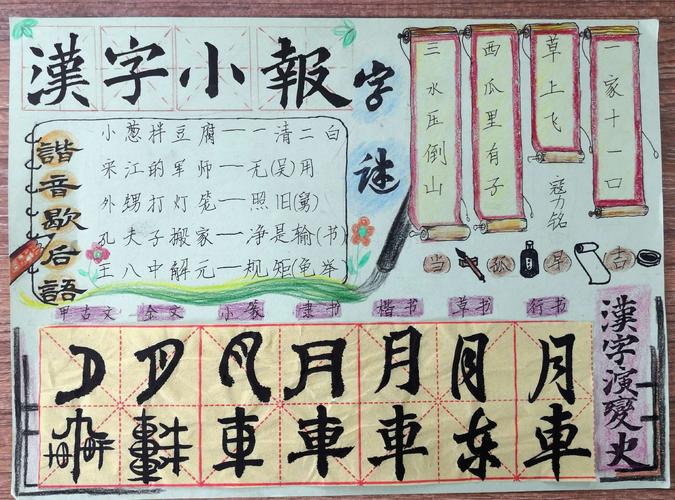 漢字小報
諧音歇后語
小葱拌豆腐一一清二白
宋江的军师一无(吴)用
外甥打灯笼一照旧(舅)
孔夫子搬家一净是输(书)
王八中解元一规矩(龟举)
字谜
三水压倒山
西瓜里有子
草上飞
一家十一口
寇力铭
当 孤 早 吉
甲古文 金文 小篆 隶书 楷书 草书 行书
月 月 月 月 月 月 月
車 車 車 車 車 东 車
漢字演變史